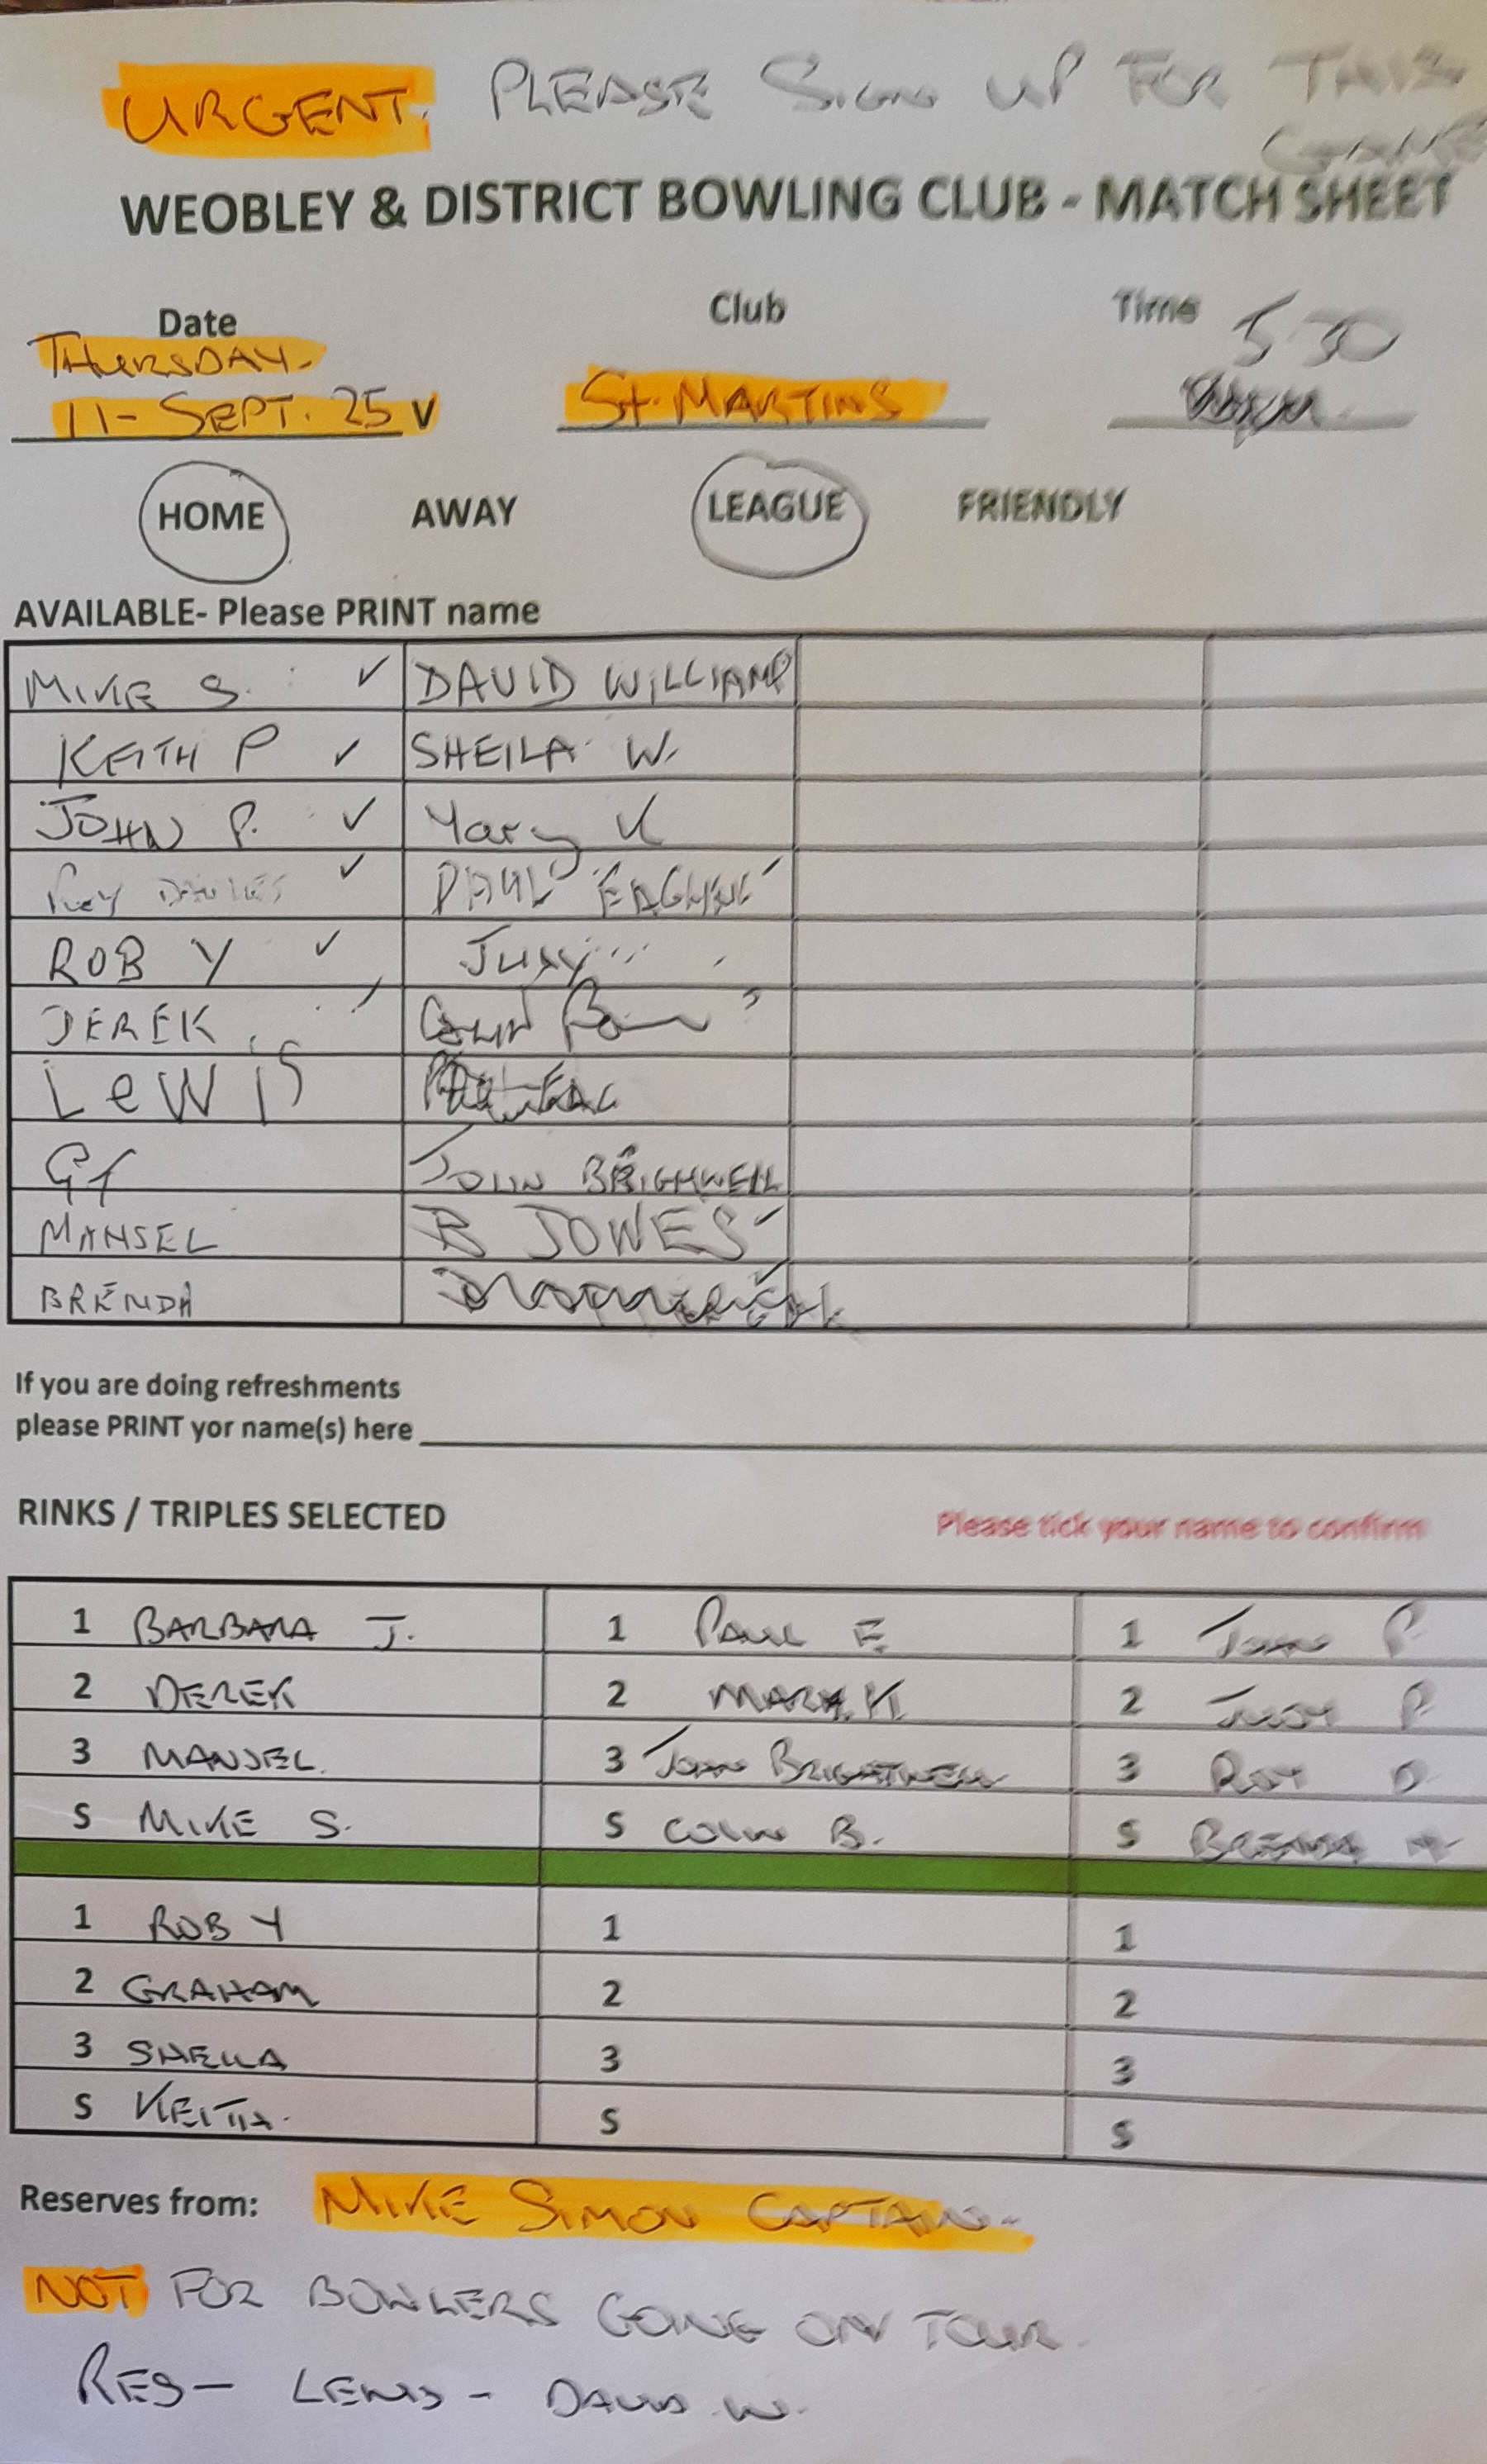 URGENT. PLEASE SIGN UP FOR THIS
GAME
WEOBLEY & DISTRICT BOWLING CLUB - MATCH SHEET
Date Club Time 5 30
THURSDAY.
11 - SEPT. 25 V St. MARTINS
HOME AWAY LEAGUE FRIENDLY
AVAILABLE- Please PRINT name
MIKE S. ✓ DAVID WILLIAMS
KEITH P ✓ SHEILA W.
JOHN P. ✓ Mary K
Roy DAVIES ✓ PAUL
ROB Y ✓ Judy
DEREK Colin
LewiS
GF JOHN BRIGHWELL
MANSEL B JONES
BRENDA
If you are doing refreshments
please PRINT yor name(s) here
RINKS / TRIPLES SELECTED Please tick your name to confirm
1 BARBARA J. 1 PAUL E. 1 JOHN P
2 DEREK 2 MARY K 2 JUDY P
3 MANSEL. 3 JOHN BRIGHTWELL 3 ROY D
S MIKE S. S COLIN B. S BRENDA
1 ROB Y 1 1
2 GRAHAM 2 2
3 SHEILA 3 3
S KEITH. S S
Reserves from: MIKE SIMON CAPTAIN.
NOT FOR BOWLERS GONE ON TOUR.
RES - LEWIS - DAVID W.